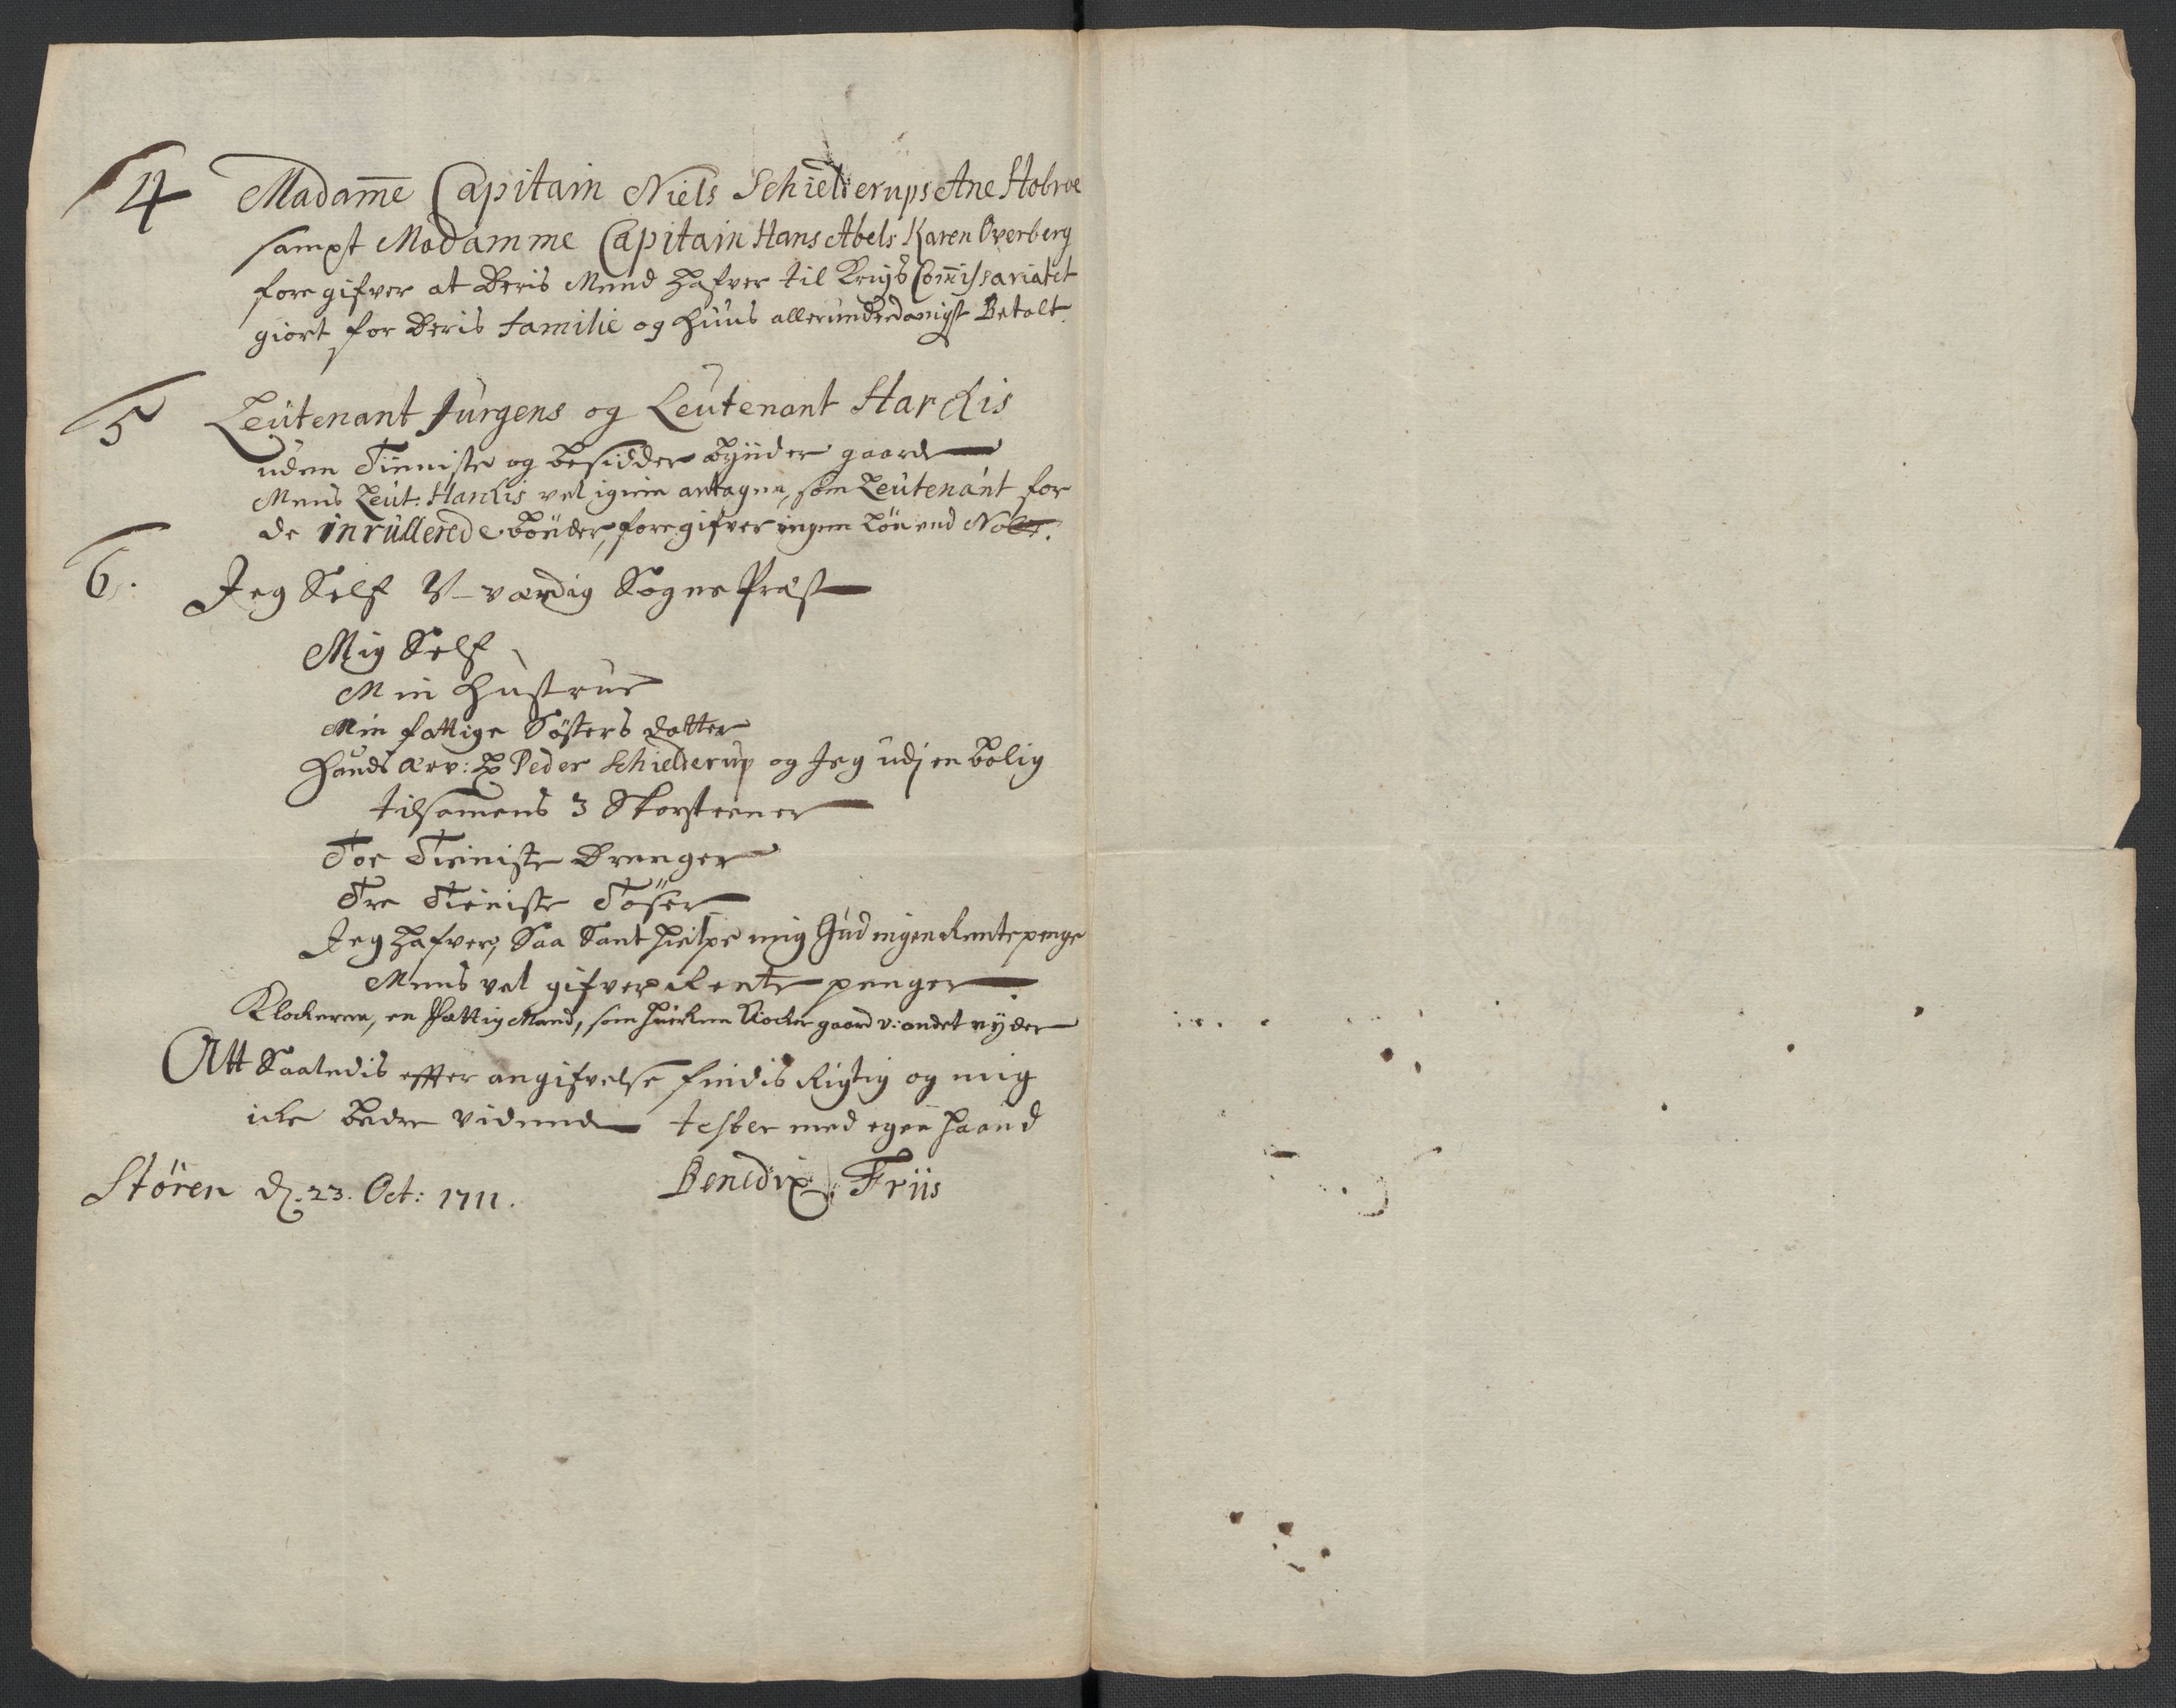 4 Madam̅e Capitain Niels Schielderups Ane Hobroe
sampt Madamme Capitain Hans Abels Karen Overberg
foregifver at Deris Mend hafver til Krigs Com̅issariatet
giort for Deris Familie og Huus allerunderdanigst Betalt
5 Leutenant Jurgens og Leutenant Harckis
uden Tienniste og besidder bynder gaarde
Mens Leut: Harckis vel igien antagen, som Leutenant for
de inrullerede bönder, foregifver ingen Lön end
6. Jeg Self U-værdig Sogne Præst
Mig Self
Min Hustrue
Min fattige Söster Datter
Hands ærv: H Peder Schielderup og Jeg udj en bolig
tilsamens 3 Skorsteener
Toe Tienniste Drenger
Tre Tieniste Töser
Jeg hafver, Saa Sant hielpe mig Gud ingen Rentepenge
Mens vel gifver Rente penger
Klockeren, en Fattig Mand, som huerken Klocker gaard v: andet nyder
Att Saaledis effter angifvelse findis Rigtig og mig
icke bedre vidende tester med egen Haand
Stören d. 23. Oct: 1711. Benedix Friis